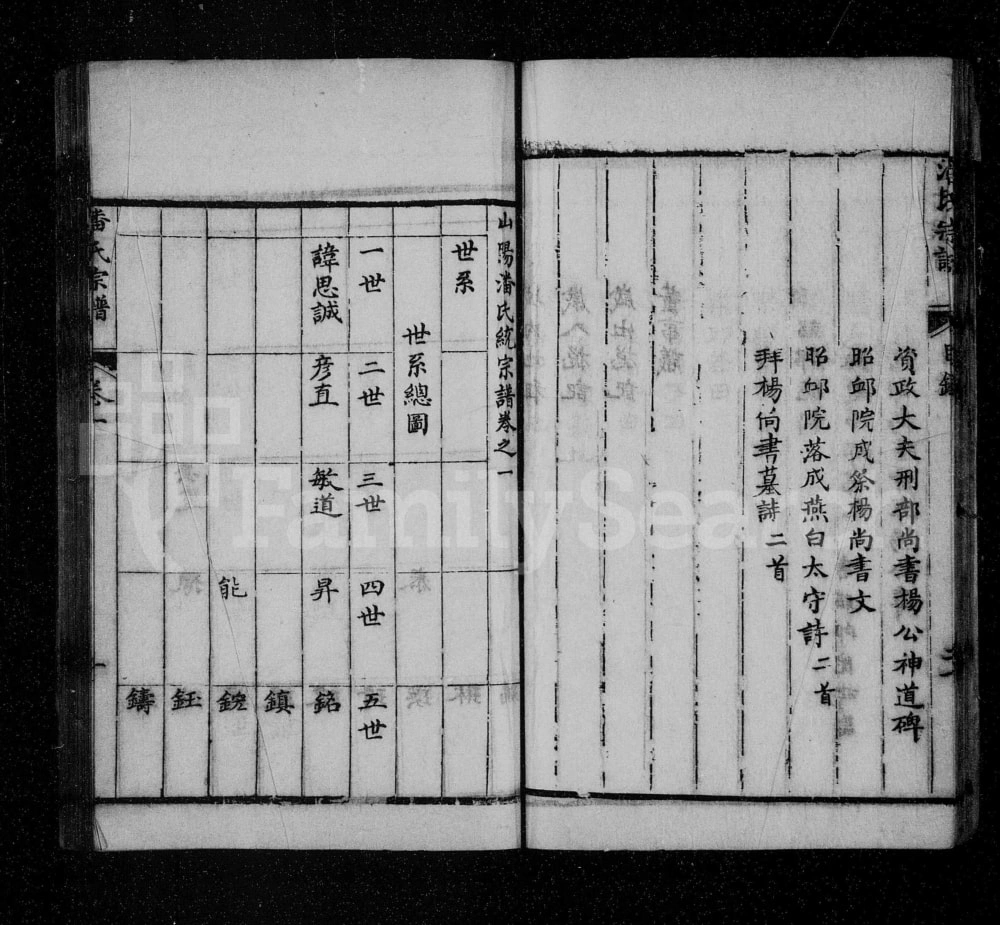 潘氏宗譜
目錄
資政大夫刑部尚書楊公神道碑
昭邮院成祭楊尚書文
昭邮院落成燕白太守詩二首
拜楊尚書墓詩二首
山陽潘氏統宗譜卷之一
世系
世系總圖
一世 二世 三世 四世 五世
諱思誠 彦直 敏道 昇 銘
鎮
能 銳
鈺
鑄
潘氏宗譜
卷一
一
FamilySearch